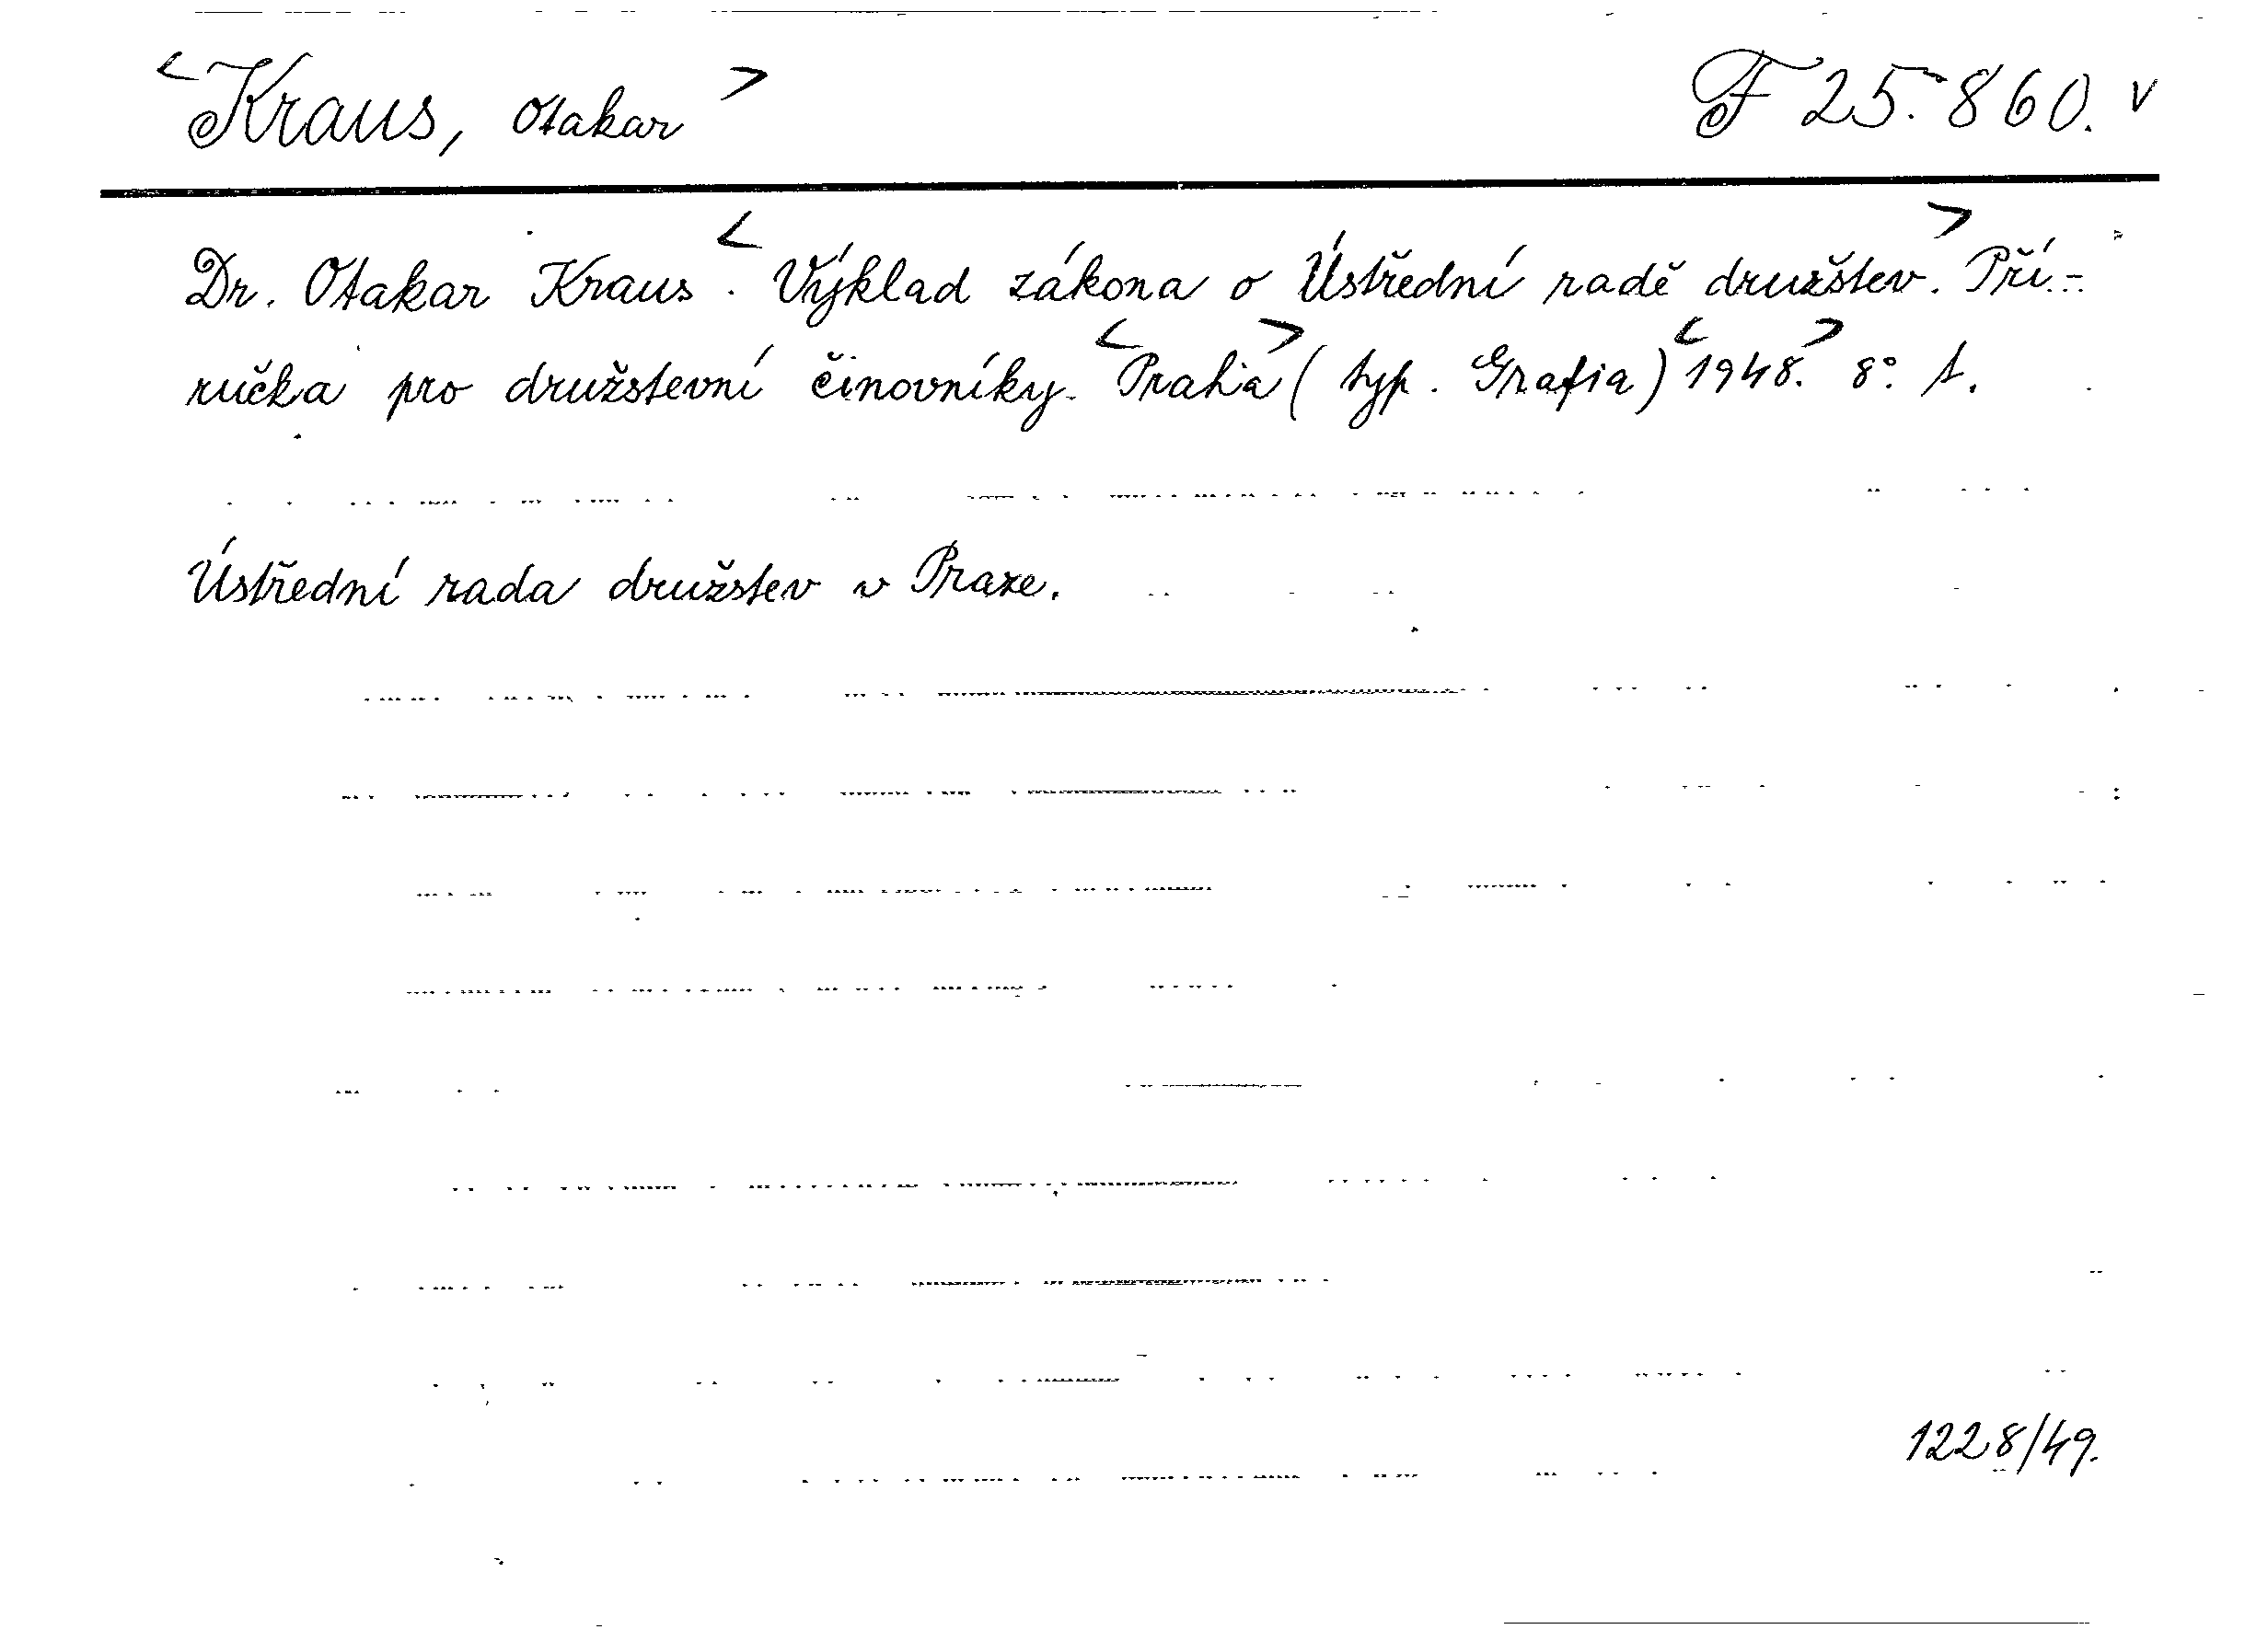 <Kraus, Otakar> F 25.860. v
Dr. Otakar Kraus. <Výklad zákona o Ústřední radě družstev.> Pří-
ručka pro družstevní činovníky. <Praha> (typ. Grafia) <1948.> 8° 1.
Ústřední rada družstev v Praze.
1228/49.